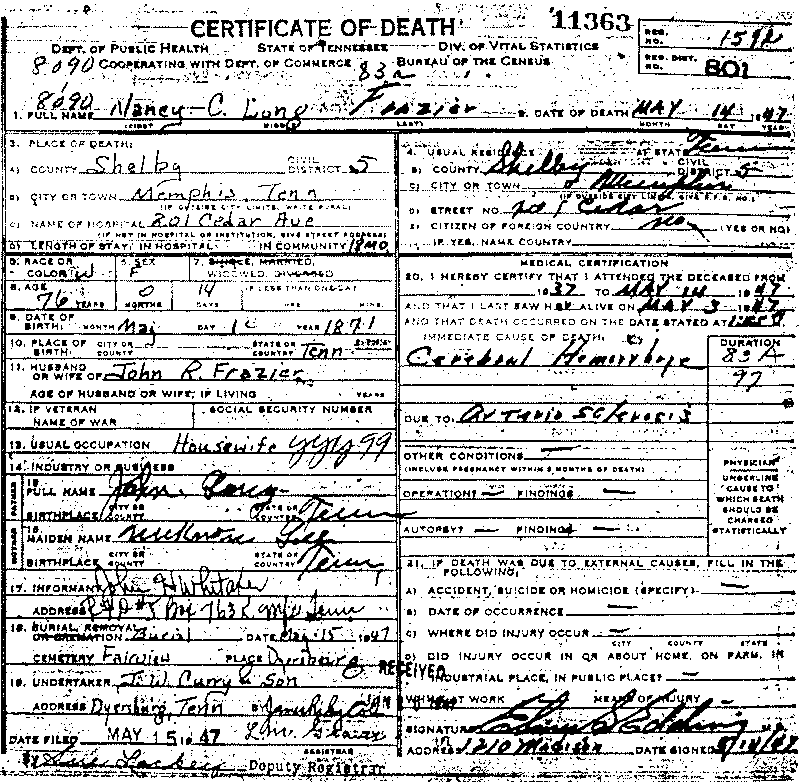 CERTIFICATE OF DEATH 11363
REG. NO. 1592
DEPT. OF PUBLIC HEALTH STATE OF TENNESSEE DIV. OF VITAL STATISTICS
8090 COOPERATING WITH DEPT. OF COMMERCE 83a BUREAU OF THE CENSUS
REG. DIST. NO. 801
8090
1. FULL NAME Nancy C. Long Frazier 2. DATE OF DEATH MAY 14 1947
(FIRST) (MIDDLE) (LAST) MONTH DAY YEAR
3. PLACE OF DEATH:
A) COUNTY Shelby CIVIL DISTRICT 5
B) CITY OR TOWN Memphis, Tenn
(IF OUTSIDE CITY LIMITS, WRITE RURAL)
C) NAME OF HOSPITAL 801 Cedar Ave
(IF NOT IN HOSPITAL OR INSTITUTION, GIVE STREET ADDRESS)
D) LENGTH OF STAY: IN HOSPITAL IN COMMUNITY 18 MO.
4. USUAL RESIDENCE A) STATE Tenn
B) COUNTY Shelby CIVIL DISTRICT 5
C) CITY OR TOWN Memphis
D) STREET NO. 801 Cedar
E) CITIZEN OF FOREIGN COUNTRY no (YES OR NO)
IF YES, NAME COUNTRY
5. RACE OR COLOR W 6. SEX F 7. SINGLE, MARRIED, WIDOWED, DIVORCED
8. AGE 76 YEARS 0 MONTHS 14 DAYS IF LESS THAN ONE DAY HRS. MINS.
9. DATE OF BIRTH: MONTH May DAY YEAR 1871
10. PLACE OF BIRTH: CITY OR COUNTY STATE OR COUNTRY Tenn
11. HUSBAND OR WIFE OF John R. Frazier
AGE OF HUSBAND OR WIFE, IF LIVING YEARS
12. IF VETERAN NAME OF WAR SOCIAL SECURITY NUMBER
13. USUAL OCCUPATION Housewife
14. INDUSTRY OR BUSINESS
FATHER
15. FULL NAME John Long
BIRTHPLACE CITY OR COUNTY STATE OR COUNTRY Tenn
MOTHER
16. MAIDEN NAME Unknown Lee
BIRTHPLACE CITY OR COUNTY STATE OR COUNTRY Tenn
17. INFORMANT John H Whitaker
ADDRESS
18. BURIAL, REMOVAL, OR CREMATION Burial DATE May 15 1947
CEMETERY Fairview PLACE Dyersburg
19. UNDERTAKER J. W. Curry & Son
ADDRESS Dyersburg, Tenn BY
DATE FILED MAY 15 1947
REGISTRAR
Deputy Registrar
RECEIVED
MEDICAL CERTIFICATION
20. I HEREBY CERTIFY THAT I ATTENDED THE DECEASED FROM
1937 TO MAY 14 1947
AND THAT I LAST SAW H ALIVE ON MAY 3 1947
AND THAT DEATH OCCURRED ON THE DATE STATED AT
IMMEDIATE CAUSE OF DEATH: DURATION
Cerebral Hemorrhage 83A
97
DUE TO: Arterio Sclerosis
OTHER CONDITIONS —
(INCLUDE PREGNANCY WITHIN 3 MONTHS OF DEATH)
OPERATION? — FINDINGS —
AUTOPSY? — FINDINGS —
PHYSICIAN UNDERLINE CAUSE TO WHICH DEATH SHOULD BE CHARGED STATISTICALLY
21. IF DEATH WAS DUE TO EXTERNAL CAUSES, FILL IN THE FOLLOWING:
A) ACCIDENT, SUICIDE OR HOMICIDE (SPECIFY) —
B) DATE OF OCCURRENCE —
C) WHERE DID INJURY OCCUR —
CITY COUNTY STATE
D) DID INJURY OCCUR IN OR ABOUT HOME, ON FARM, IN
INDUSTRIAL PLACE, IN PUBLIC PLACE? —
WHILE AT WORK MEANS OF INJURY
SIGNATURE
ADDRESS 1210 Madison DATE SIGNED